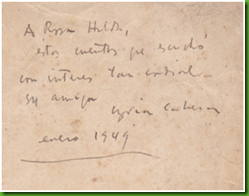 A Rosa Hilda,
estos cuentos que escuchó
con interés tan cordial.
su amiga
Lydia Cabrera
enero 1949